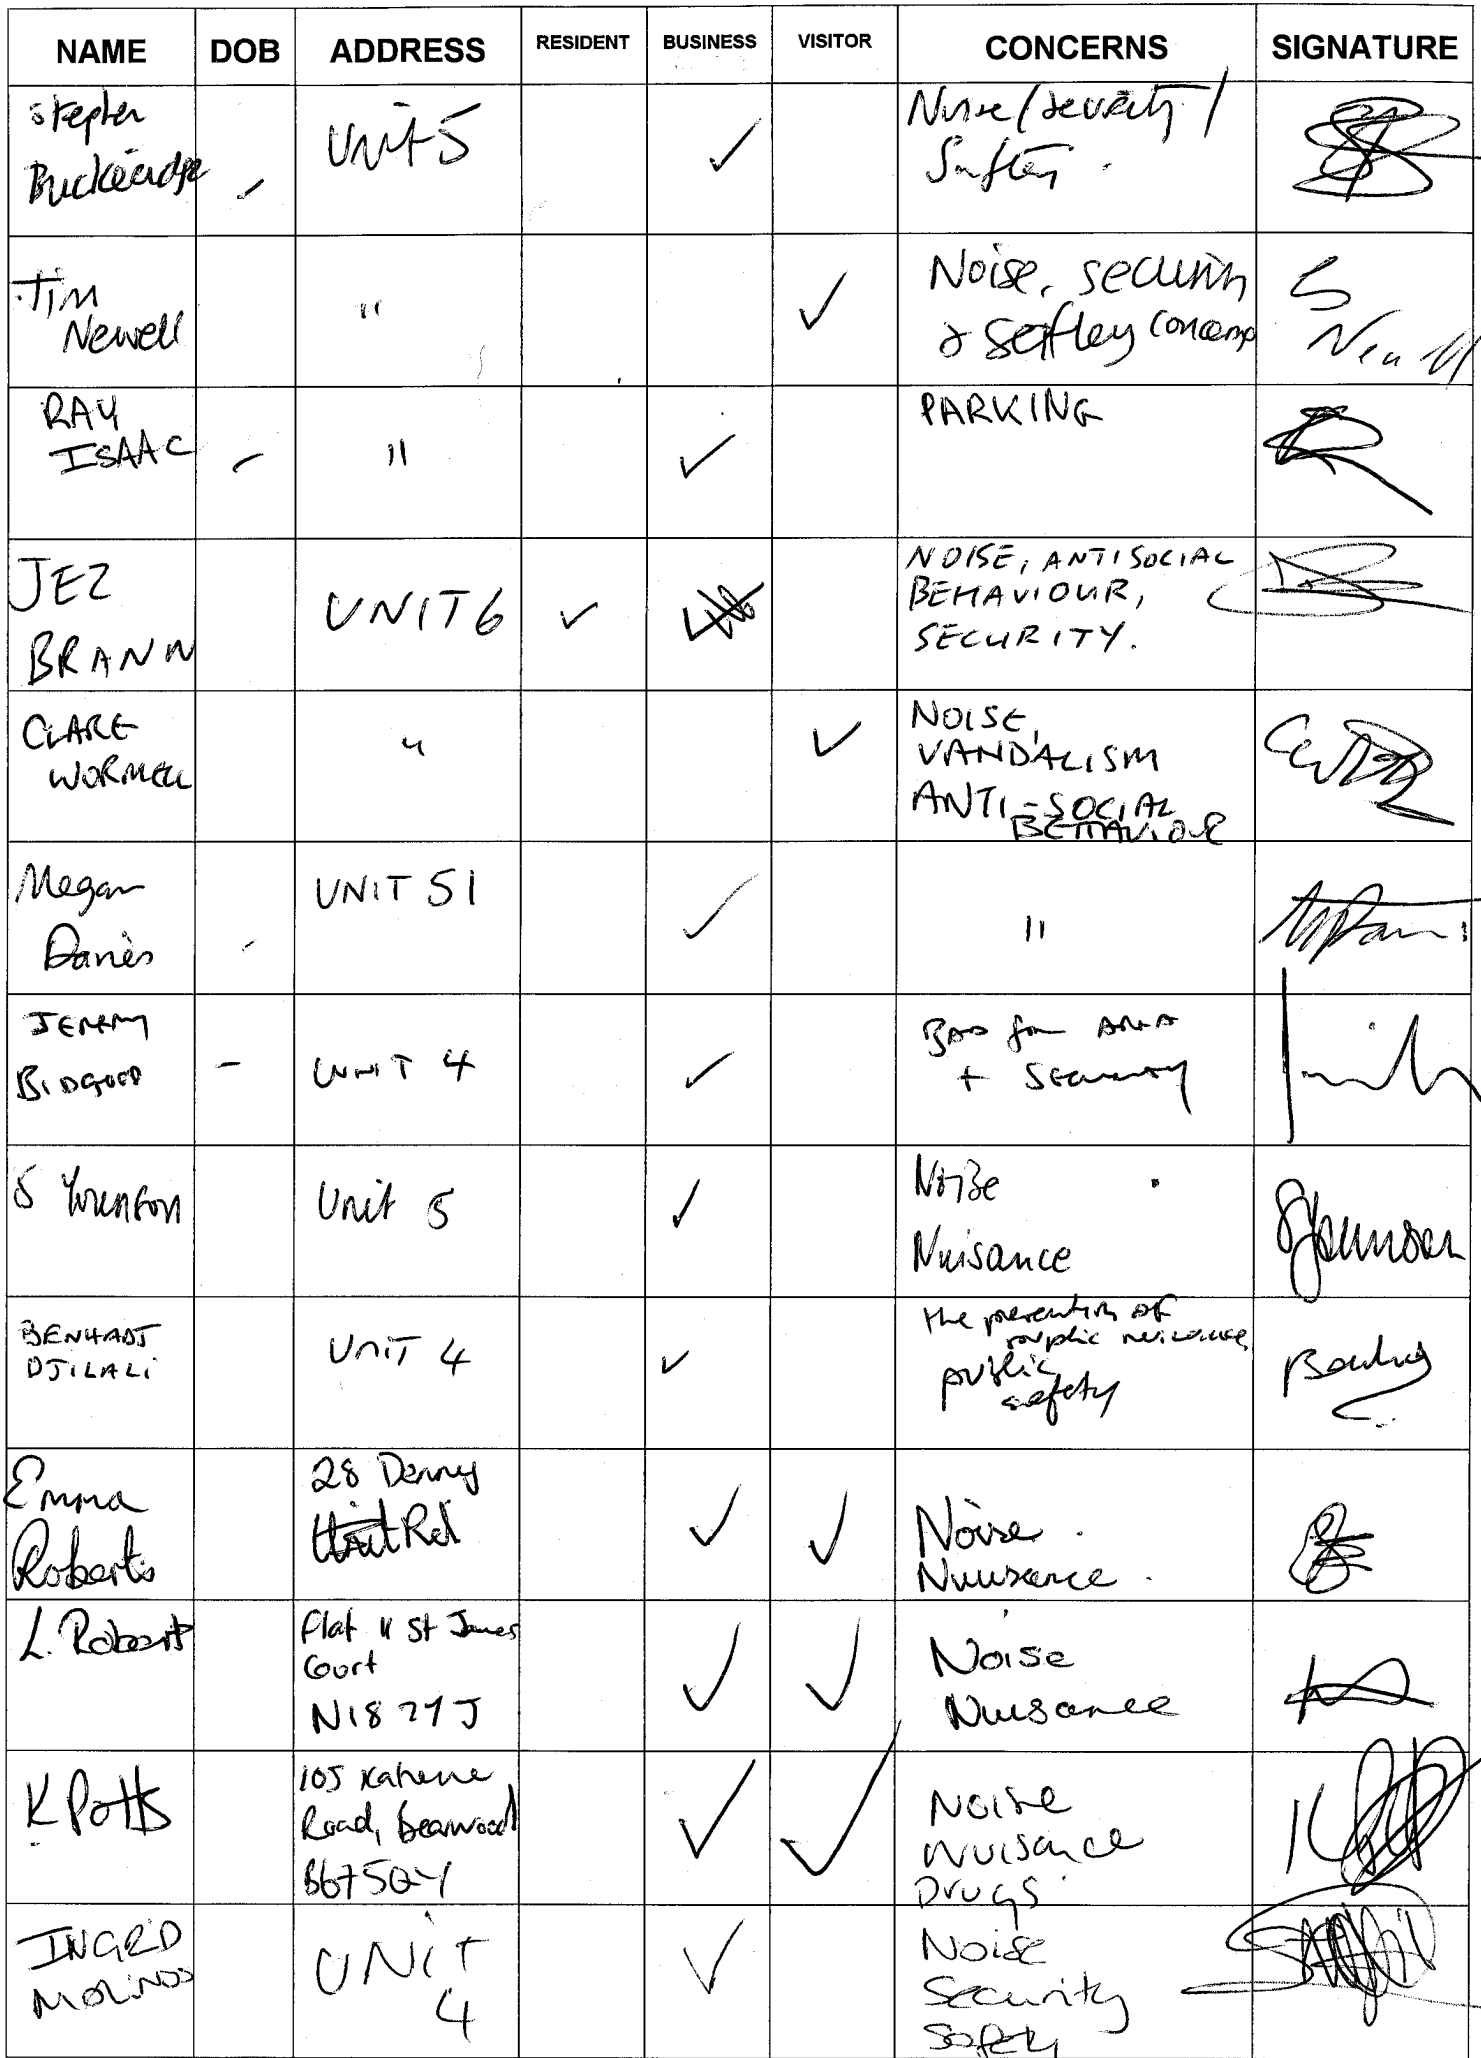 NAME DOB ADDRESS RESIDENT BUSINESS VISITOR CONCERNS SIGNATURE
Stephen
Unit 5
Noise / security /
Saftey.
Tim
Newell
"
Noise, security
& Saftey concerns
RAY
ISAAC
"
PARKING
JEZ
BRANN
UNIT 6
NOISE, ANTISOCIAL
BEHAVIOUR,
SECURITY.
CLARE
WORMELL
"
NOISE,
VANDALISM
ANTI-SOCIAL
BEHAVIOUR
Megan
Davies
UNIT 51
"
JEREMY
BIDGOOD
UNIT 4
BAD for AREA
+ SECURITY
S Younson
Unit 5
Noise
Nuisance
BENHADJ
DJILALI
UNIT 4
the prevention of
public nuisance,
public
safety
Emma
Roberts
28 Denny
Rd
Noise
Nuisance.
L. Roberts
Flat 11 St James
Court
N18 2YJ
Noise
Nuisance
K Potts
105
Road, Bearwood
B67 5QY
Noise
Nuisance
Drugs
INGRID
MOLINOS
UNIT
4
Noise
Security
Safety